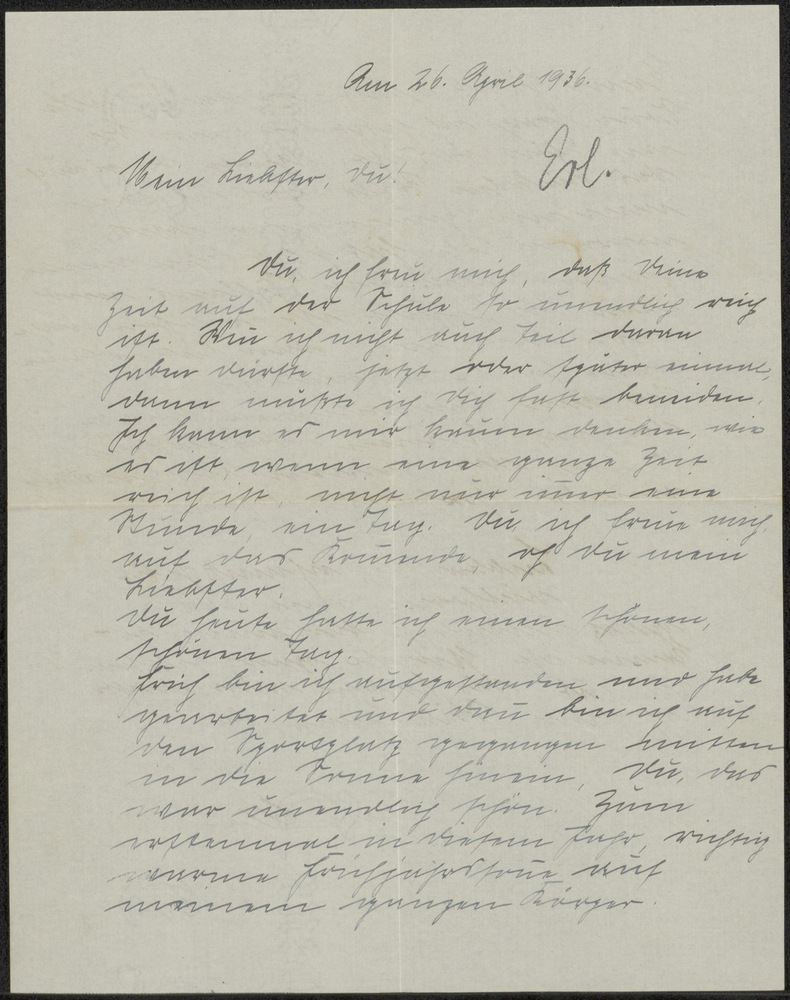 Am 26. April 1936.
Erl.
Mein Liebster, Du!
Du, ich freu mich, daß Deine
Zeit auf der Schule so unendlich reich
ist. Wenn ich nicht auch Teil daran
haben dürfte, jetzt oder später einmal,
dann müßte ich Dich fast beneiden.
Ich kann es mir kaum denken, wie
es ist, wenn eine ganze Zeit
reich ist, nicht nur immer eine
Stunde, ein Tag. Du, ich freue mich
auf das Kommende, oh Du mein
Liebster.
Du heute hatte ich einen schönen,
schönen Tag.
Früh bin ich aufgestanden und habe
gearbeitet und dann bin ich auf
den Sportplatz gegangen mitten
in die Sonne hinein, Du, das
war unendlich schön. Zum
erstenmal in diesem Jahr, richtig
warme Frühjahrssonne auf
meinem ganzen Körper.